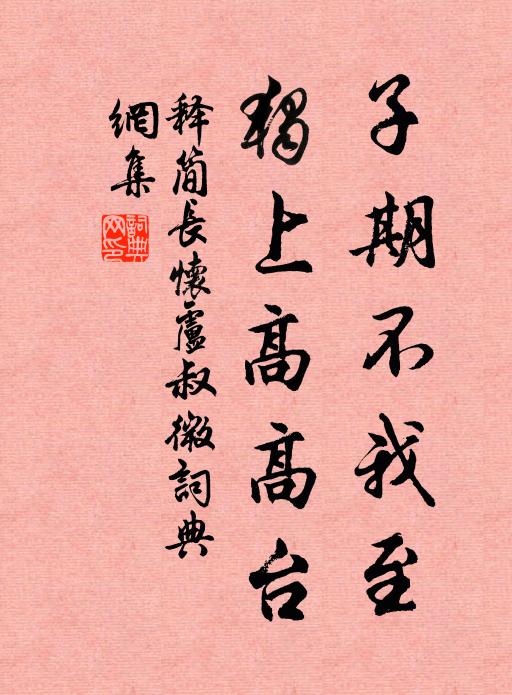 子期不我至
獨上高高台
释简長懷盧叔微詞典
網集
詞典
网印